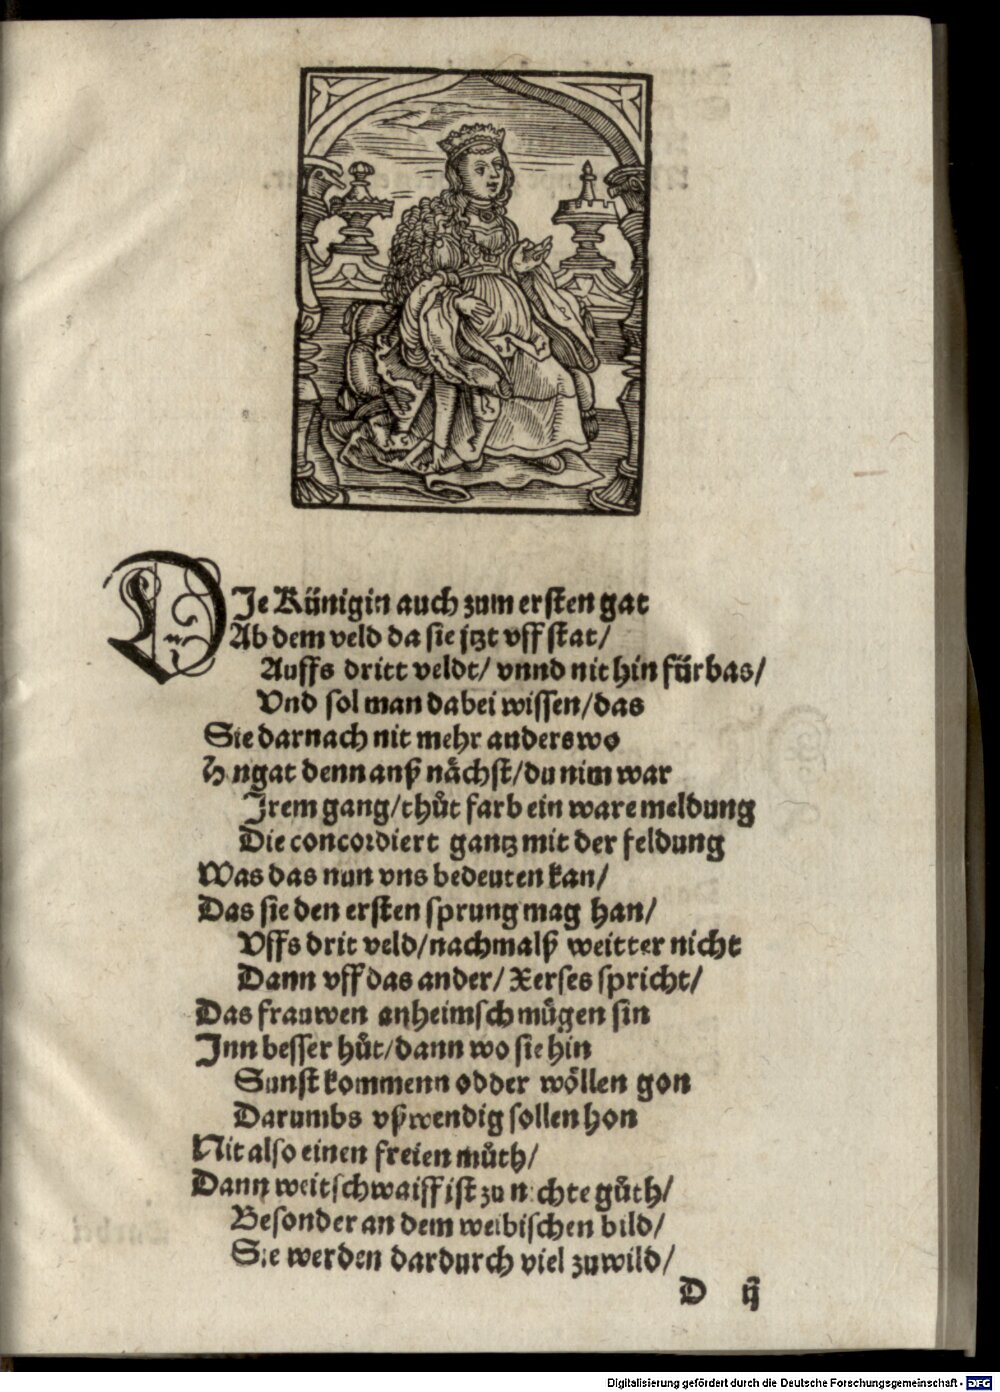 DIe Künigin auch zum ersten gat
Ab dem veld da sie jtzt vff stat/
Auffs dritt veldt/ vnnd nit hin fürbas/
Vnd sol man dabei wissen/das
Sie darnach nit mehr anderswo
Hngat denn anß nächst/du nim war
Irem gang/thůt farb ein ware meldung
Die concordiert gantz mit der feldung
Was das nun vns bedeuten kan/
Das sie den ersten sprung mag han/
Vffs drit veld/nachmalß weitter nicht
Dann vff das ander/ Xerses spricht/
Das frauwen anheimsch mügen sin
Inn besser hůt/dann wo sie hin
Sunst kommenn odder wöllen gon
Darumbs vßwendig sollen hon
Nit also einen freien můth/
Dann weitschwaiff ist zu nichte gůth/
Besonder an dem weibischen bild/
Sie werden dardurch viel zuwild/
D ij
Digitalisierung gefördert durch die Deutsche Forschungsgemeinschaft - DFG